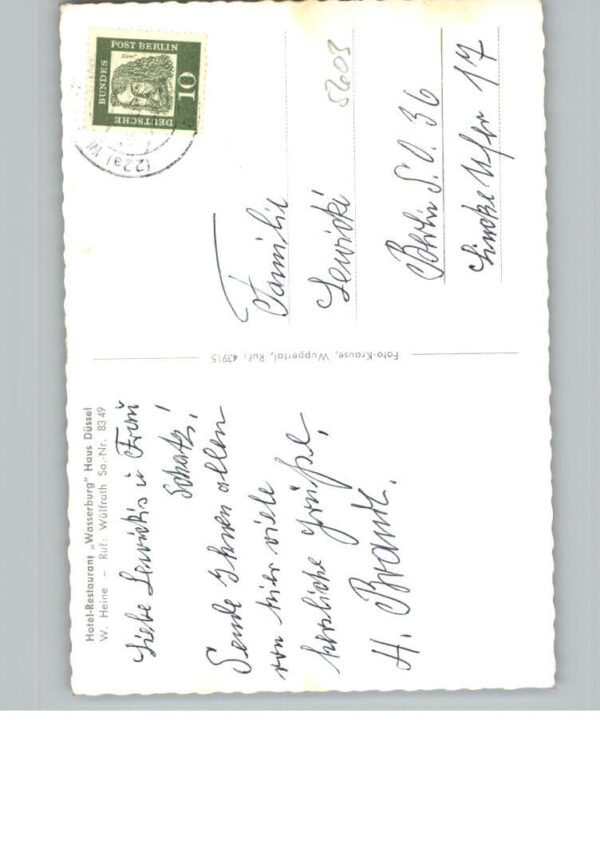 Hotel-Restaurant „Wasserburg" Haus Düssel
W. Heine – Ruf: Wülfrath Sa.-Nr. 83 49
Liebe Lewickis u. Frau
Schatz!
Sende Ihnen allen
von hier viele
herzliche Grüße,
H. Brandt.
Foto-Krause, Wuppertal, Ruf: 43915
DEUTSCHE
BUNDES
POST BERLIN
Dürer
10
(22a) W
5603
Familie
Lewicki
Berlin S.O. 36
Lincke Ufer 17